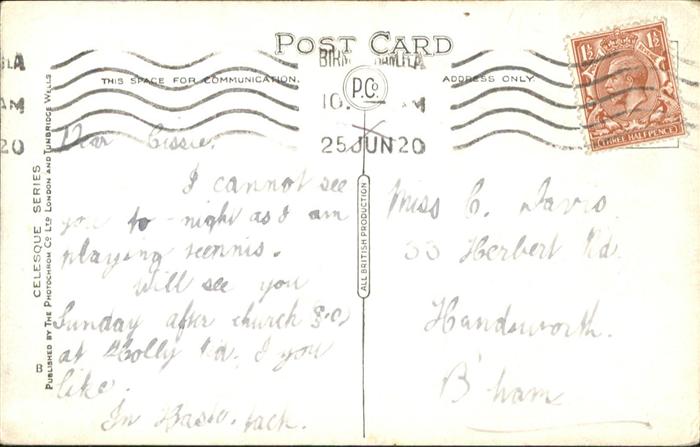 POST CARD
THIS SPACE FOR COMMUNICATION.
ADDRESS ONLY.
P.Co
25 JUN 20
AM
20
1½
1½
THREE HALFPENCE
CELESQUE SERIES
PUBLISHED BY THE PHOTOCHROM CO LTD LONDON AND TUNBRIDGE WELLS
B
ALL BRITISH PRODUCTION
Dear Cissie,
I cannot see
you to-night as I am
playing tennis.
Will see you
Sunday after church
at Holly Rd. I you
like.
In Haste. Jack.
Miss C. Davis
33 Herbert Rd.
Handsworth.
B'ham